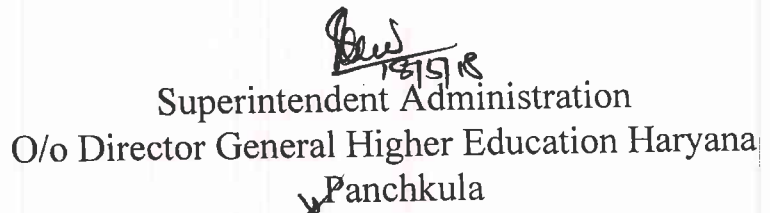 18/5/18
Superintendent Administration
O/o Director General Higher Education Haryana
Panchkula